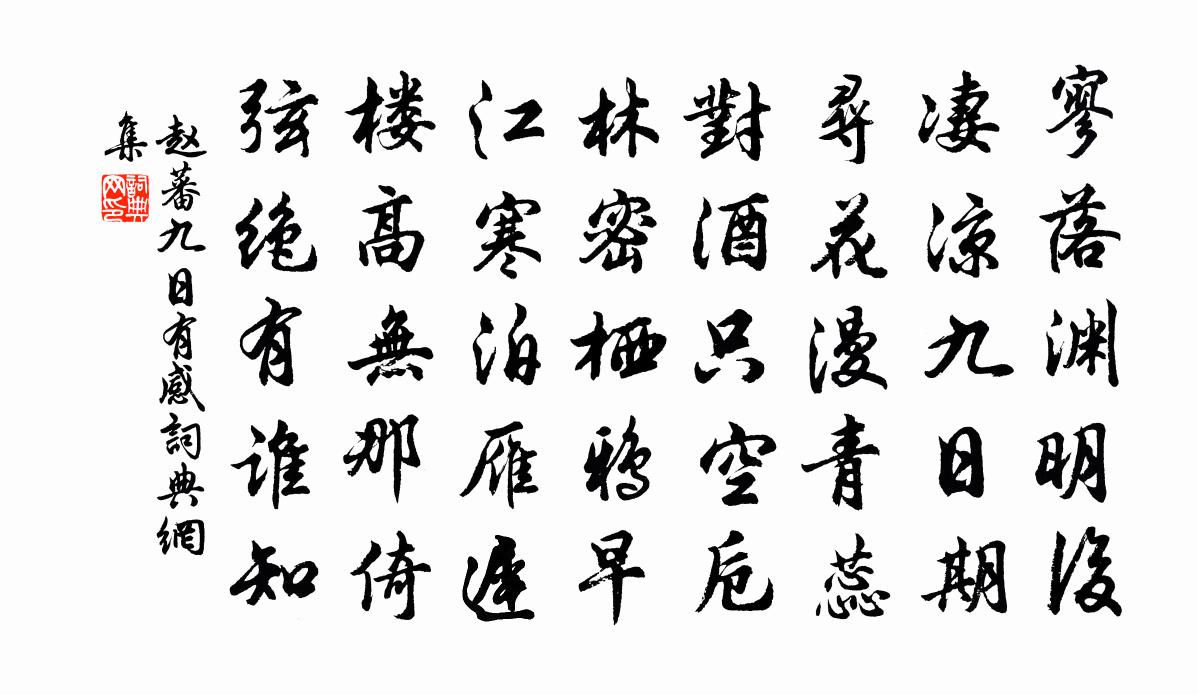 寥落渊明後
淒凉九日期
尋花漫青蕊
對酒只空卮
林密栖鸦早
江寒泊雁遲
楼高無那倚
弦绝有谁知
赵蕃九日有感詞典網
集
詞典
网印